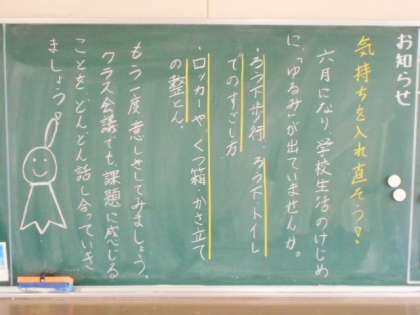 お知らせ
気持ちを入れ直そう！
六月になり、学校生活のけじめ
に、“ゆるみ”が出ていませんか。
・ろう下歩行、ろう下・トイレ
でのすごし方
・ロッカーや、くつ箱・かさ立て
の整とん。
もう一度、意しきしてみましょう。
クラス会議でも、課題に感じる
ことを、どんどん話し合っていき
ましょう。